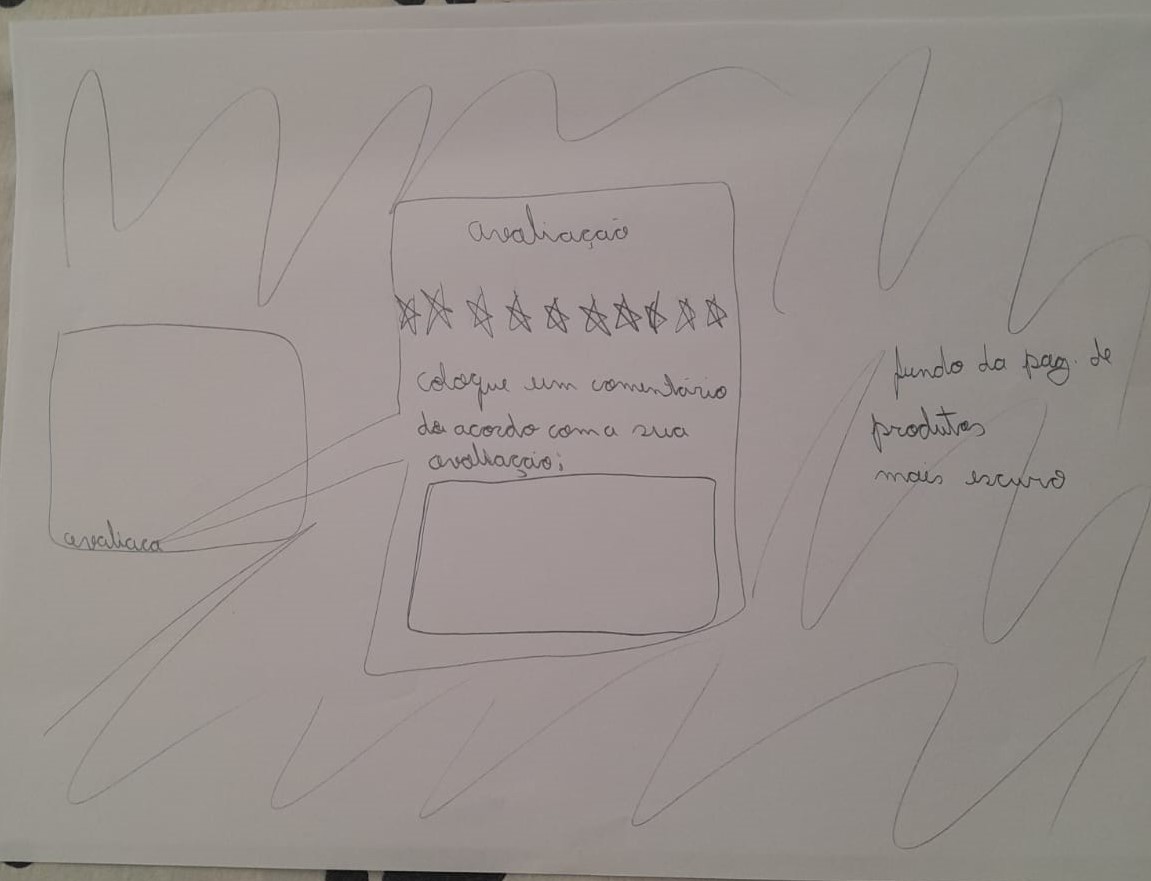 avaliação
coloque um comentário
de acordo com a sua
avaliação;
avaliaca
fundo da pag. de
produtos
mais escuro